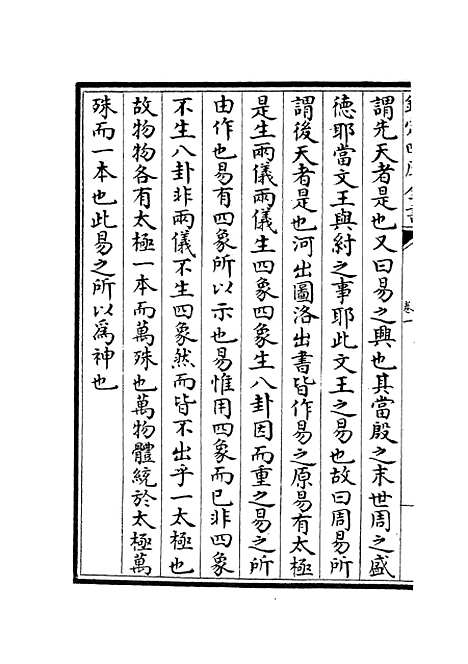 欽定四庫全書
卷一
謂先天者是也又曰易之興也其當殷之末世周之盛
德耶當文王與紂之事耶此文王之易也故曰周易所
謂後天者是也河出圖洛出書皆作易之原易有太極
是生兩儀兩儀生四象四象生八卦因而重之易之所
由作也易有四象所以示也易惟用四象而已非四象
不生八卦非兩儀不生四象然而皆不出乎一太極也
故物物各有太極一本而萬殊也萬物體統於太極萬
殊而一本也此易之所以為神也